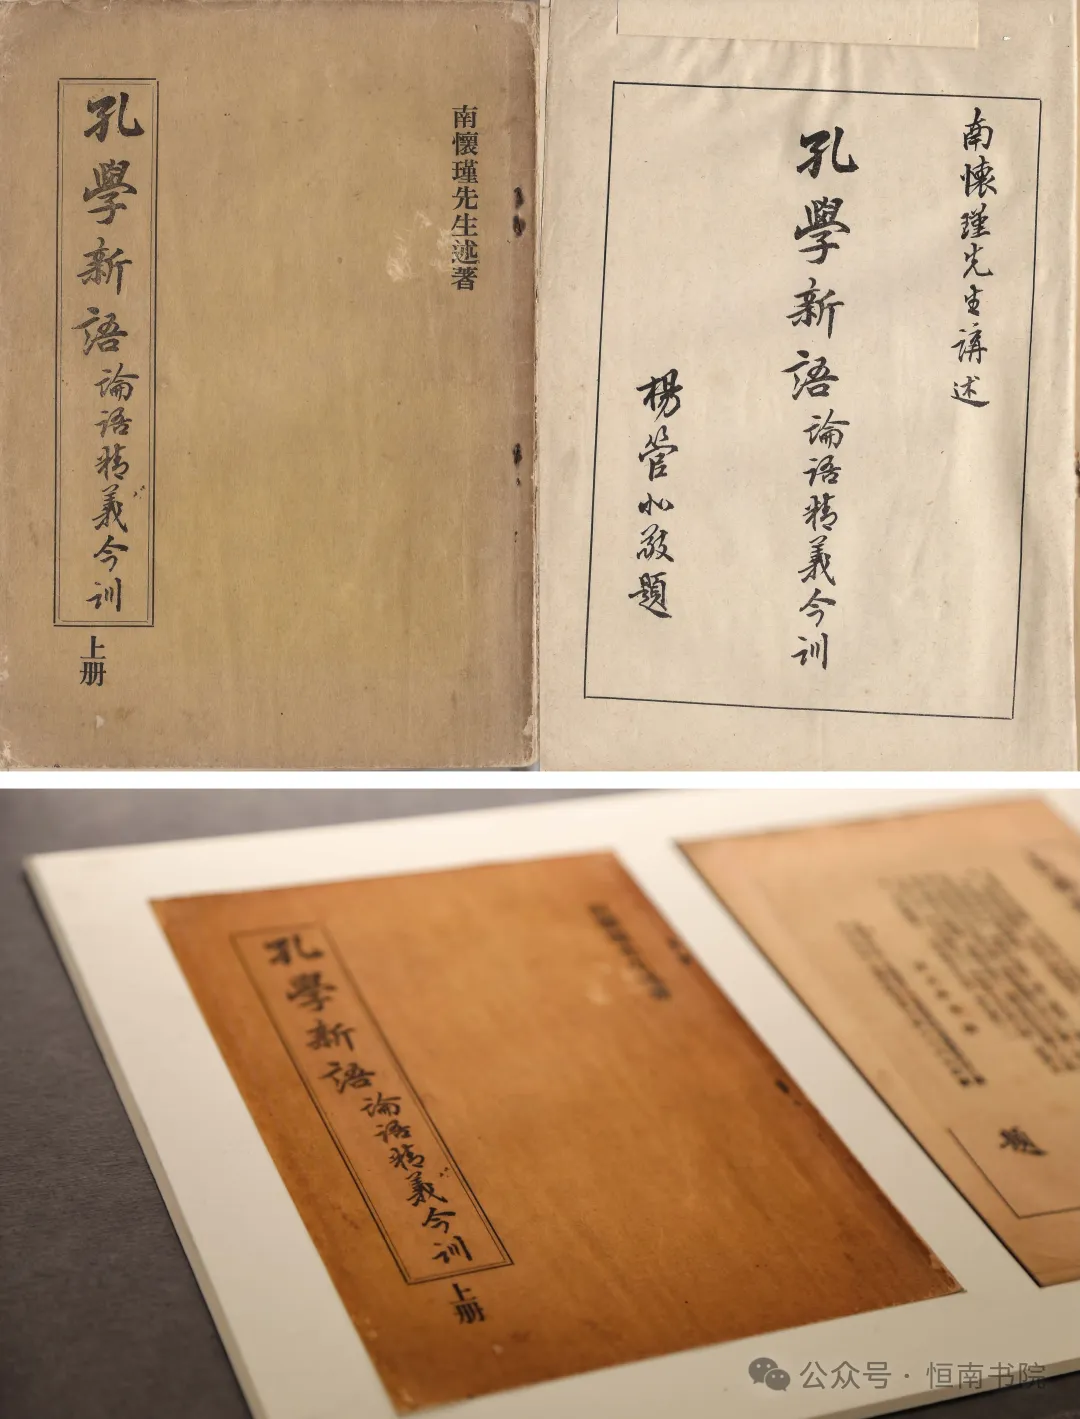 南懷瑾先生述著
孔學新語論語精義今訓
上册
南懷瑾先生講述
孔學新語論語精義今訓
楊管北敬題
孔學新語論語精義今訓
上册
題
公众号·恒南书院